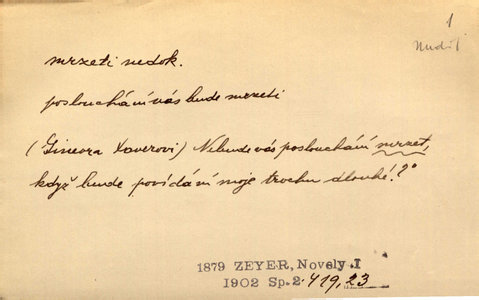 1
Nudit
mrzeti nedok.
poslouchání vás bude mrzeti
(Ginevra Xaverovi) Nebude vás poslouchání mrzet,
když bude povídání moje trochu dlouhé!?"
1879 ZEYER, Novely I
1902 Sp. 2. 419, 23